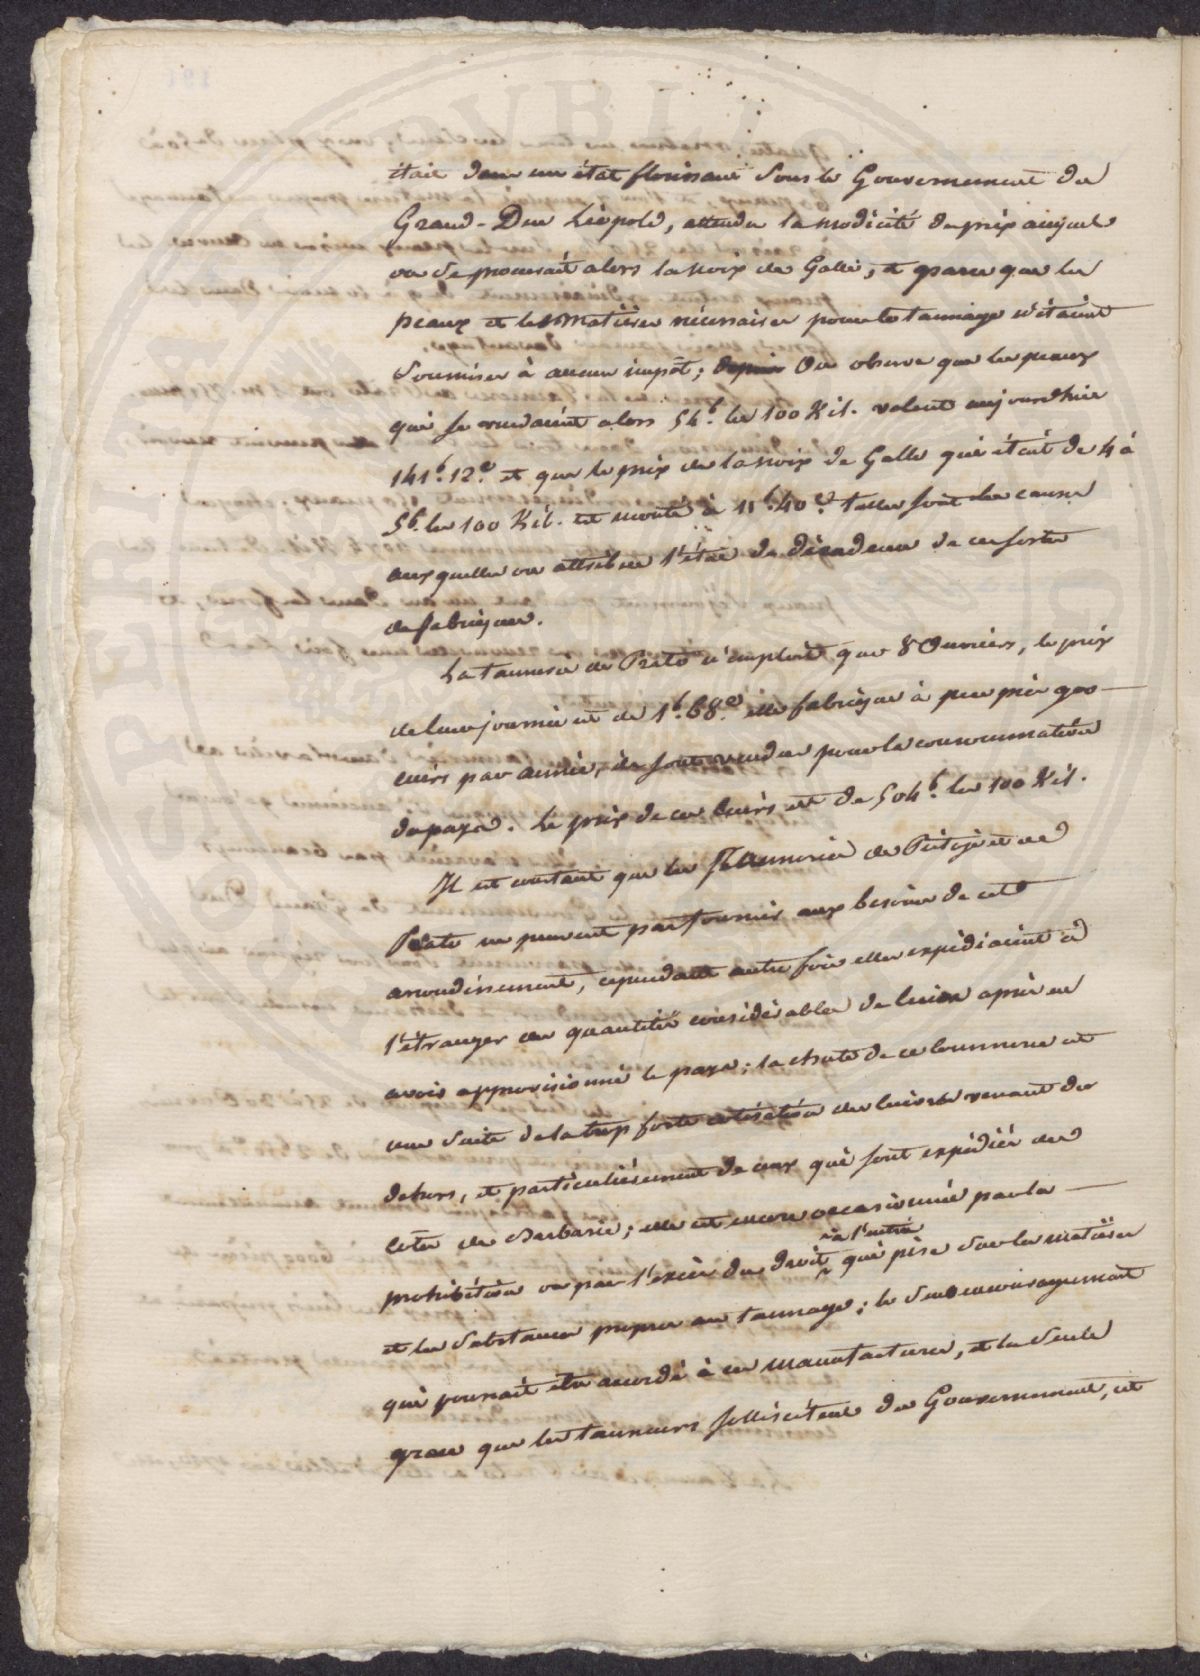 était dans un état florissant sous le Gouvernement du
Grand-Duc Léopold, attendu la modicité du prix auquel
on se procurait alors la noix de Galle, et parce que les
peaux et les matières nécessaires pour le tannage n'étaient
soumises à aucun impôt; depuis On observe que les peaux
qui se vendaient alors 54.f les 100 Kil. valent aujourdhui
141.f 12.c et que le prix de la noix de Galle qui était de 4 à
5f. les 100 Kil. est monté à 11.f 40.c telles sont les causes
auxquelles on attribue l'état de décadence de ces sortes
de fabriques.
La tannerie de Prato n'emploie que 8 Ouvriers, le prix
de leur journée est de 1.f 68.c elle fabrique à peu près 900
cuirs par année, ils sont vendus pour la consommation
du pays. Le prix de ces cuirs est de 504.f les 100 Kil.
Il est constant que les Tanneries de Pistoje et de
Prato ne peuvent pas fournir aux besoins de cet
arrondissement, cependant autre fois elles expédiaient à
l'étranger des quantités considérables de cuirs après en
avoir approvisionné le pays; la chute de ce commerce est
une suite de la trop forte cotisation des cuirs venant du
dehors, et particulièrement de ceux qui sont expédiés des
côtes de Barbarie; elle est encore occasionnée par la
prohibition ou par l'excès du droit à l'entrée qui pèse sur les matières
et les substances propres au tannage; le seul encouragement
qui pourrait être accordé à ces manufactures, et la seule
grace que les tanneurs sollicitent du Gouvernement, est